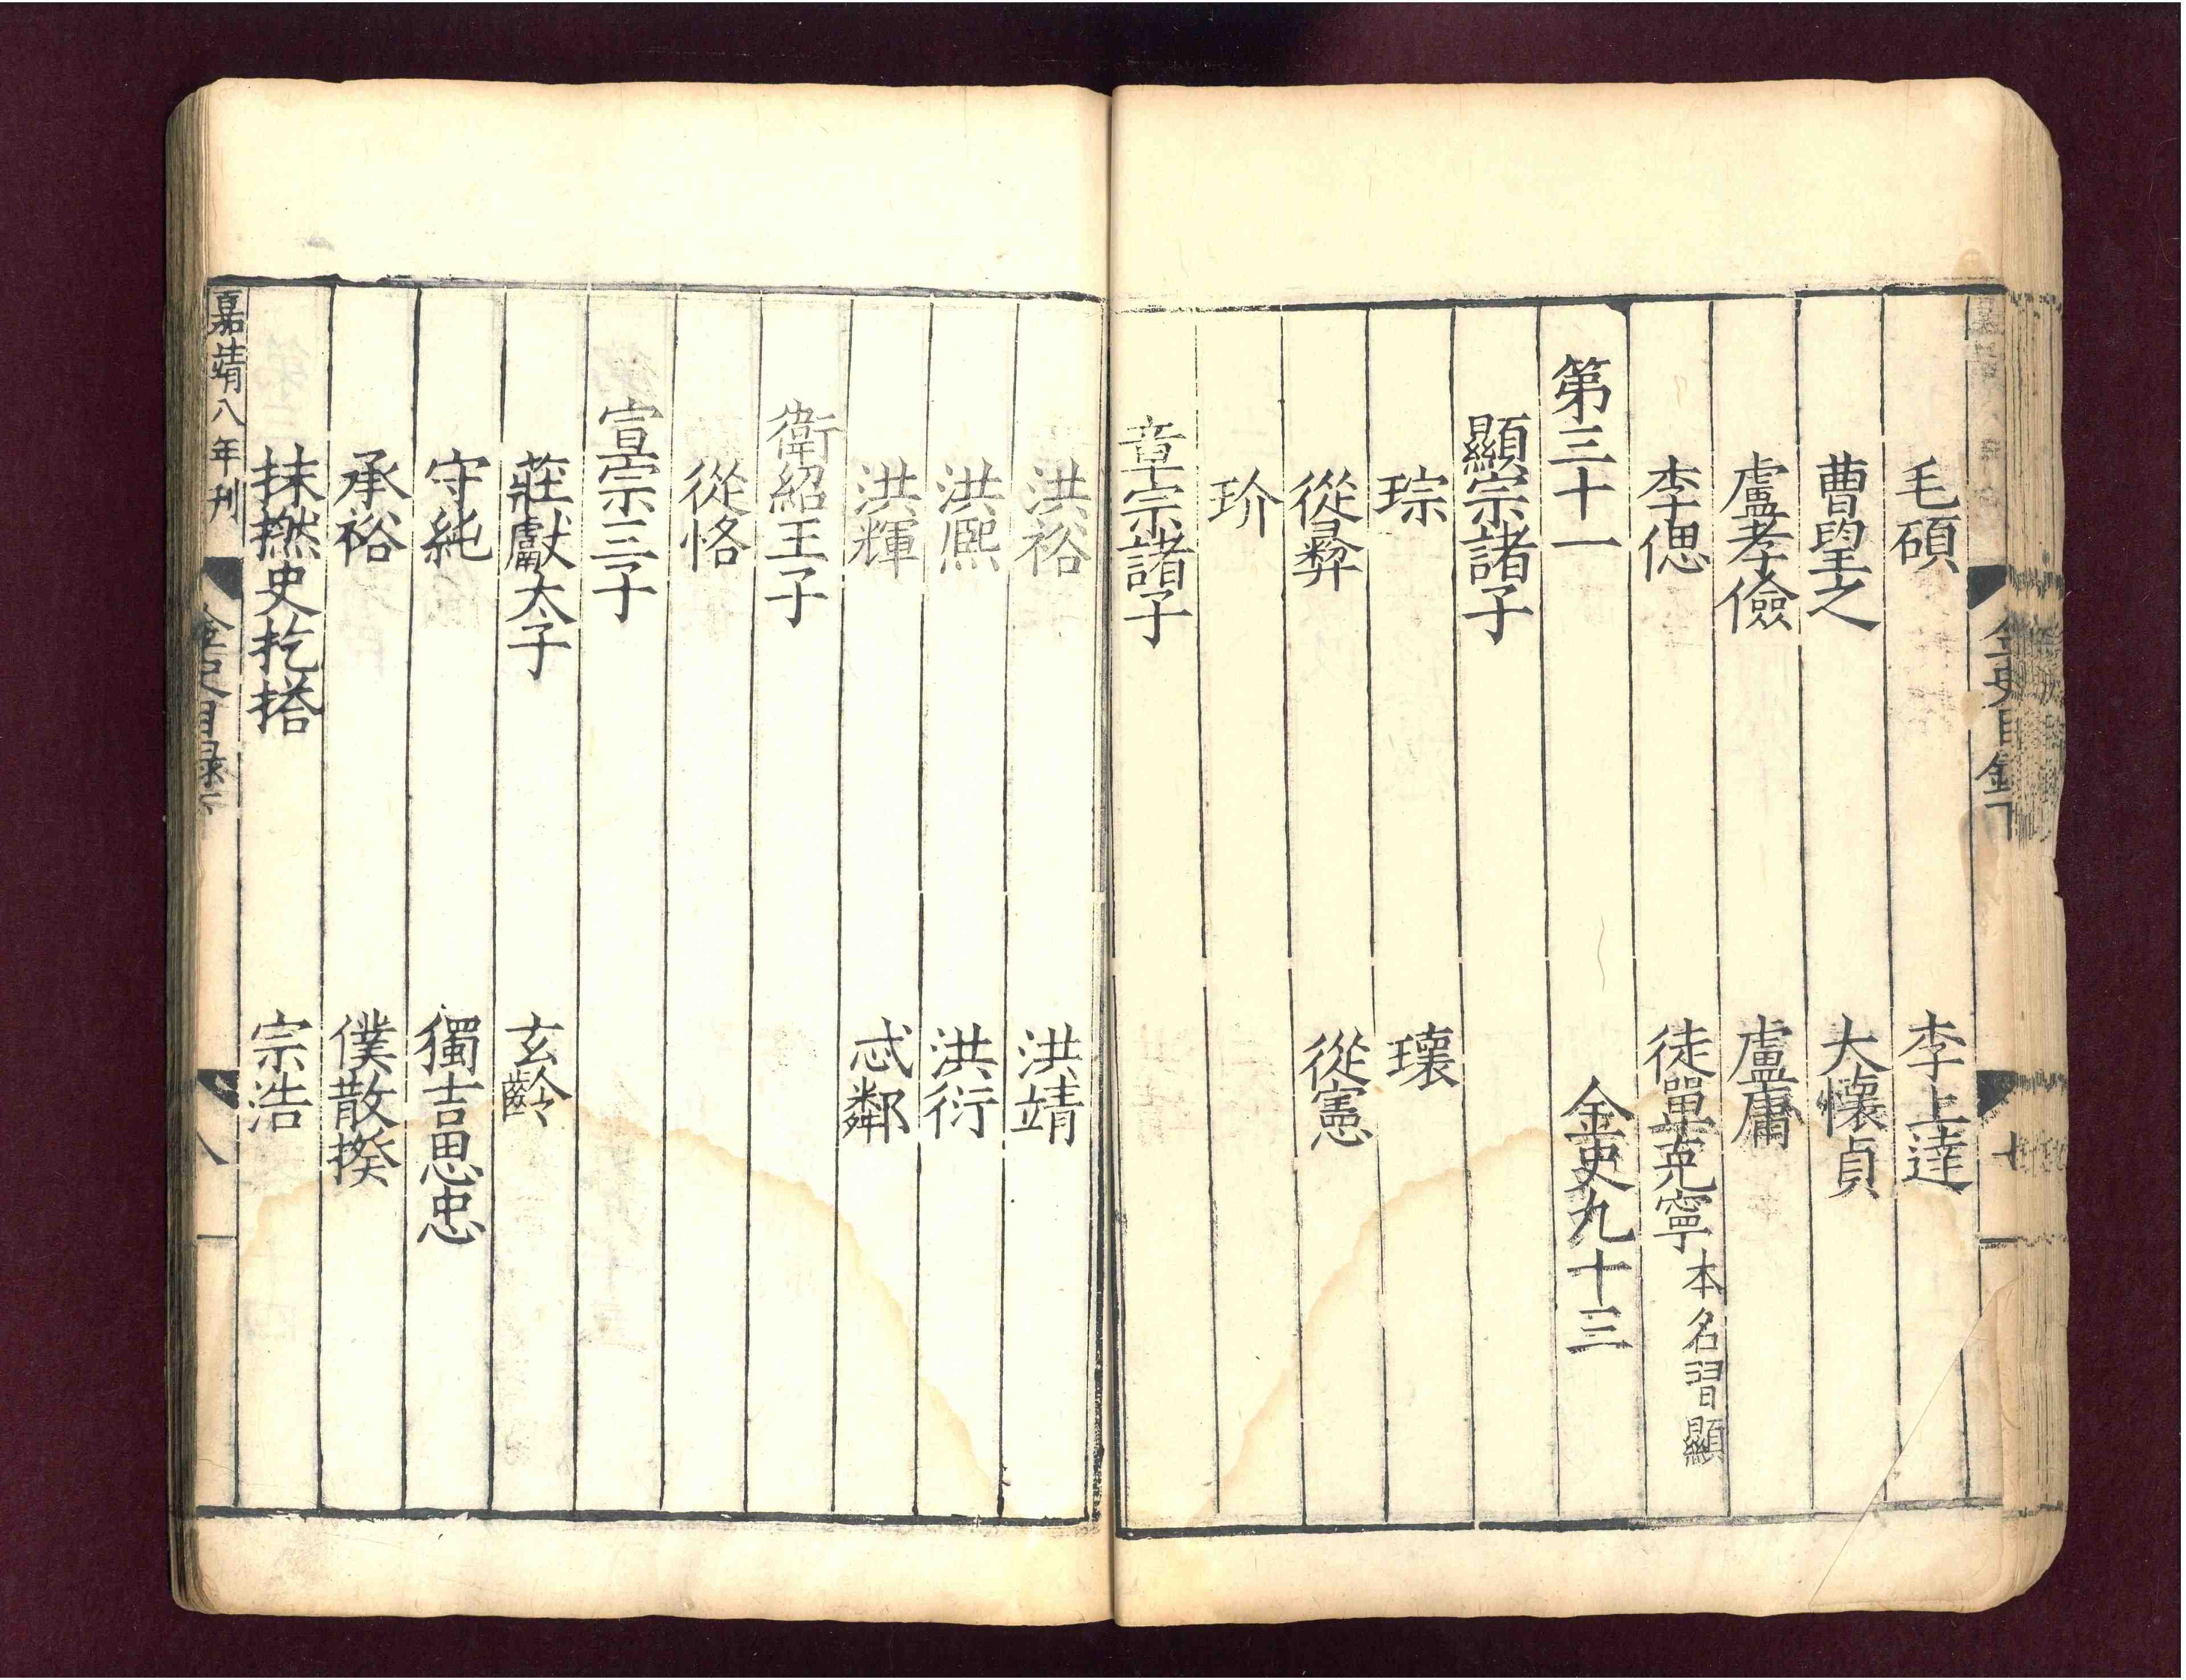 毛碩 李上達
曹望之 大懷貞
盧孝儉 盧庸
李偲 徒單克寧 本名習顯
第三十一 金史九十三
顯宗諸子
琮 瓌
從彝 從憲
玠
章宗諸子
金史目録下
七
洪裕 洪靖
洪熙 洪衍
洪輝 忒鄰
衛紹王子
從恪
宣宗三子
莊獻太子 玄齡
守純 獨吉思忠
承裕 僕散揆
抹撚史扢搭 宗浩
嘉靖八年刊
金史目録下
八